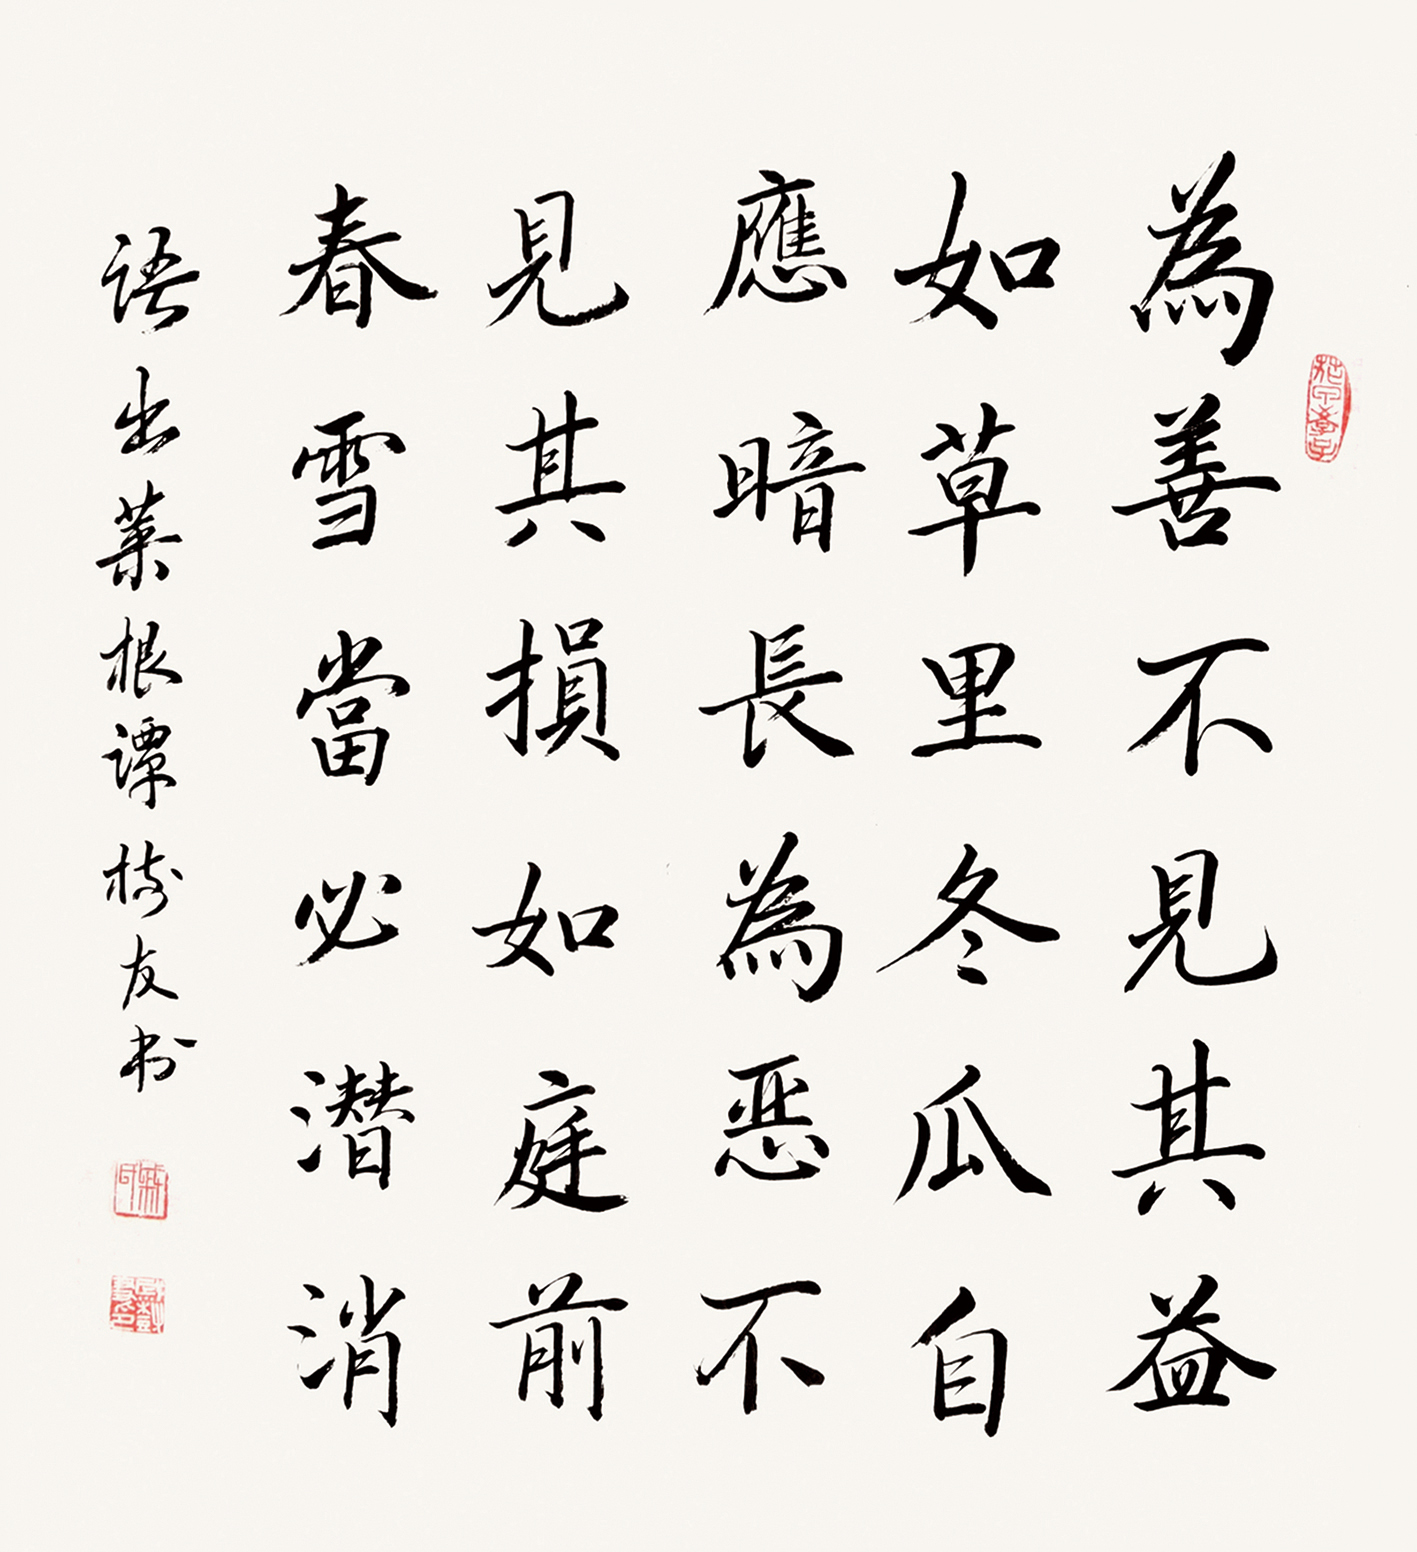 為善不見其益
如草里冬瓜自
應暗長為恶不
見其損如庭前
春雪當必潜消
语出菜根谭树友书